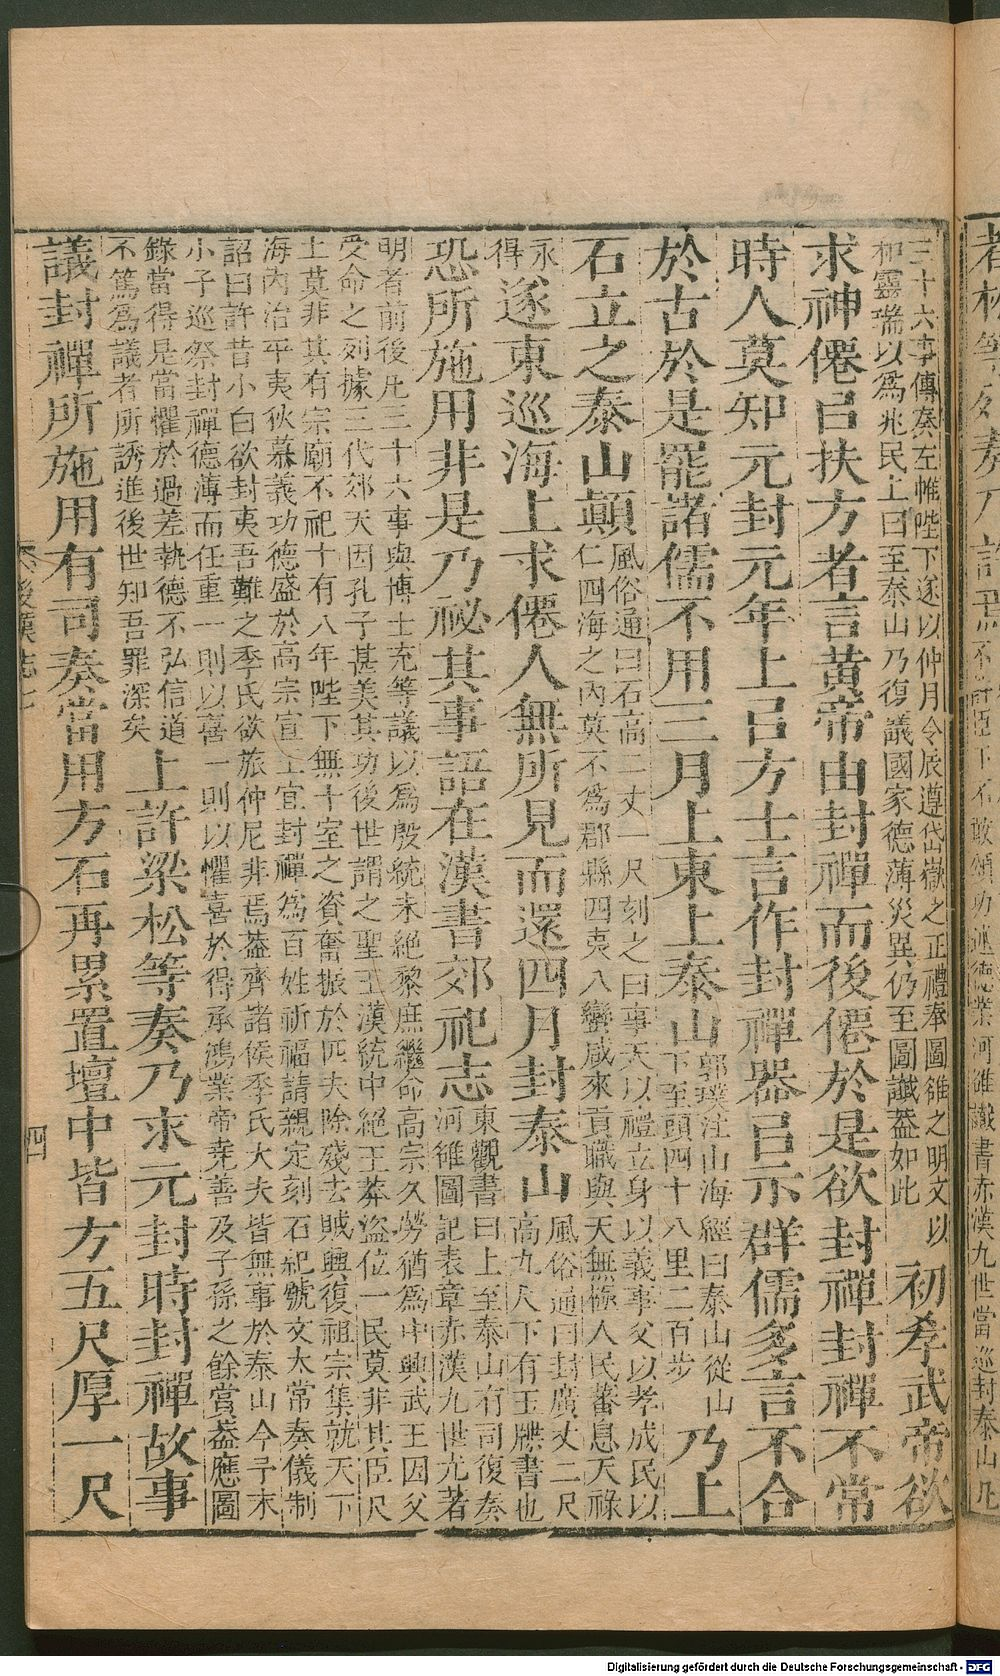 不敢頌功述德業河雒讖書赤漢九世當巡封泰山凡
三十六事傳奏左帷陛下遂以仲月令辰遵岱嶽之正禮奉圖雒之明文以
和靈瑞以為兆民上曰至泰山乃復議國家德薄災異仍至圖讖蓋如此
初孝武帝欲
求神僊㠯扶方者言黃帝由封禪而後僊於是欲封禪封禪不常
時人莫知元封元年上㠯方士言作封禪器㠯示群儒多言不合
於古於是罷諸儒不用三月上東上泰山
郭璞注山海經曰泰山從山
下至頭四十八里二百步
乃上
石立之泰山顛
風俗通曰石高二丈一尺刻之曰事天以禮立身以義事父以孝成民以
仁四海之內莫不為郡縣四夷八蠻咸來貢職與天無極人民蕃息天祿
永
得
遂東巡海上求僊人無所見而還四月封泰山
風俗通曰封廣丈二尺
高九尺下有玉牒書也
恐所施用非是乃祕其事語在漢書郊祀志
東觀書曰上至泰山有司復奏
河雒圖記表章赤漢九世尤著
明者前後凡三十六事與博士充等議以為殷統未絕黎庶繼命高宗久勞猶為中興武王因父
受命之列據三代郊天因孔子甚美其功後世謂之聖王漢統中絕王莽盜位一民莫非其臣尺
土莫非其有宗廟不祀十有八年陛下無十室之資奮振於匹夫除殘去賊興復祖宗集就天下
海內治平夷狄慕義功德盛於高宗宣王宜封禪為百姓祈福請親定刻石紀號文太常奏儀制
詔曰許昔小白欲封夷吾難之季氏欲旅仲尼非焉蓋齊諸侯季氏大夫皆無事於泰山今予末
小子巡祭封禪德薄而任重一則以喜一則以懼喜於得承鴻業帝堯善及子孫之餘賞蓋應圖
籙當得是當懼於過差執德不弘信道
不篤為議者所誘進後世知吾罪深矣
上許梁松等奏乃求元封時封禪故事
議封禪所施用有司奏當用方石再累置壇中皆方五尺厚一尺
後漢志七
四
Digitalisierung gefördert durch die Deutsche Forschungsgemeinschaft - DFG